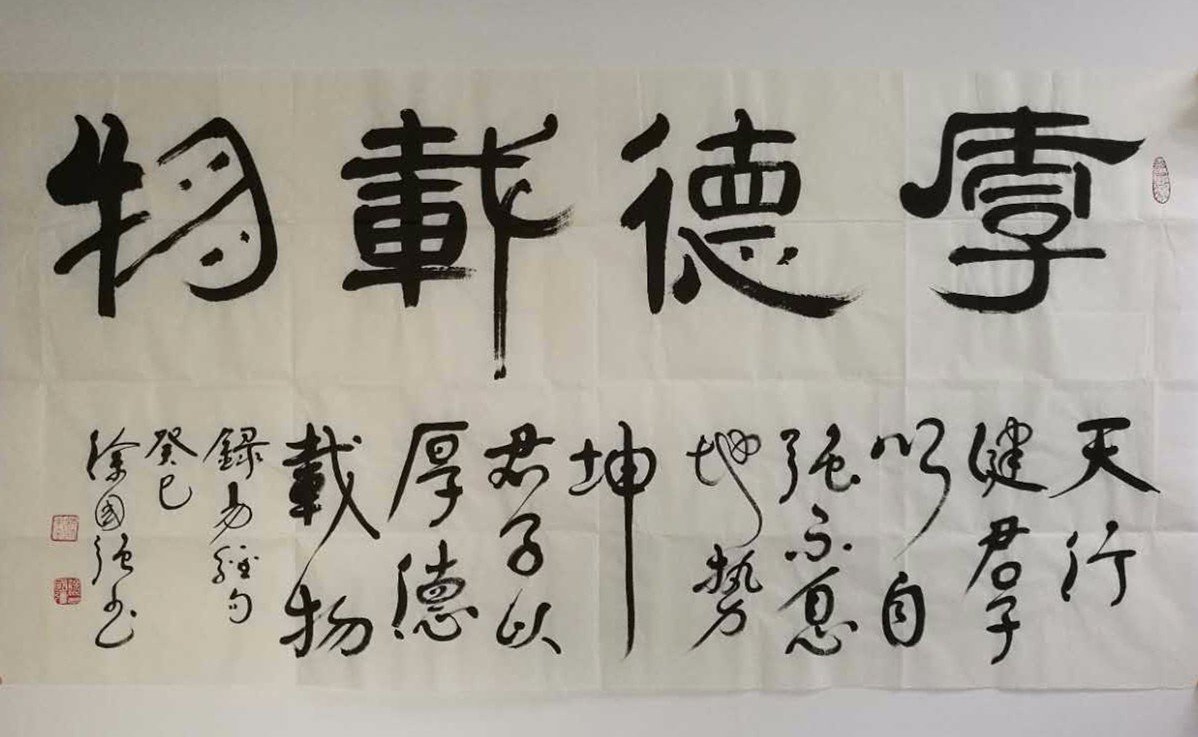 厚德載物
天行
健君子
以自
强不息
地勢
坤
君子以
厚德
載物
錄易經句
癸巳
徐國强书